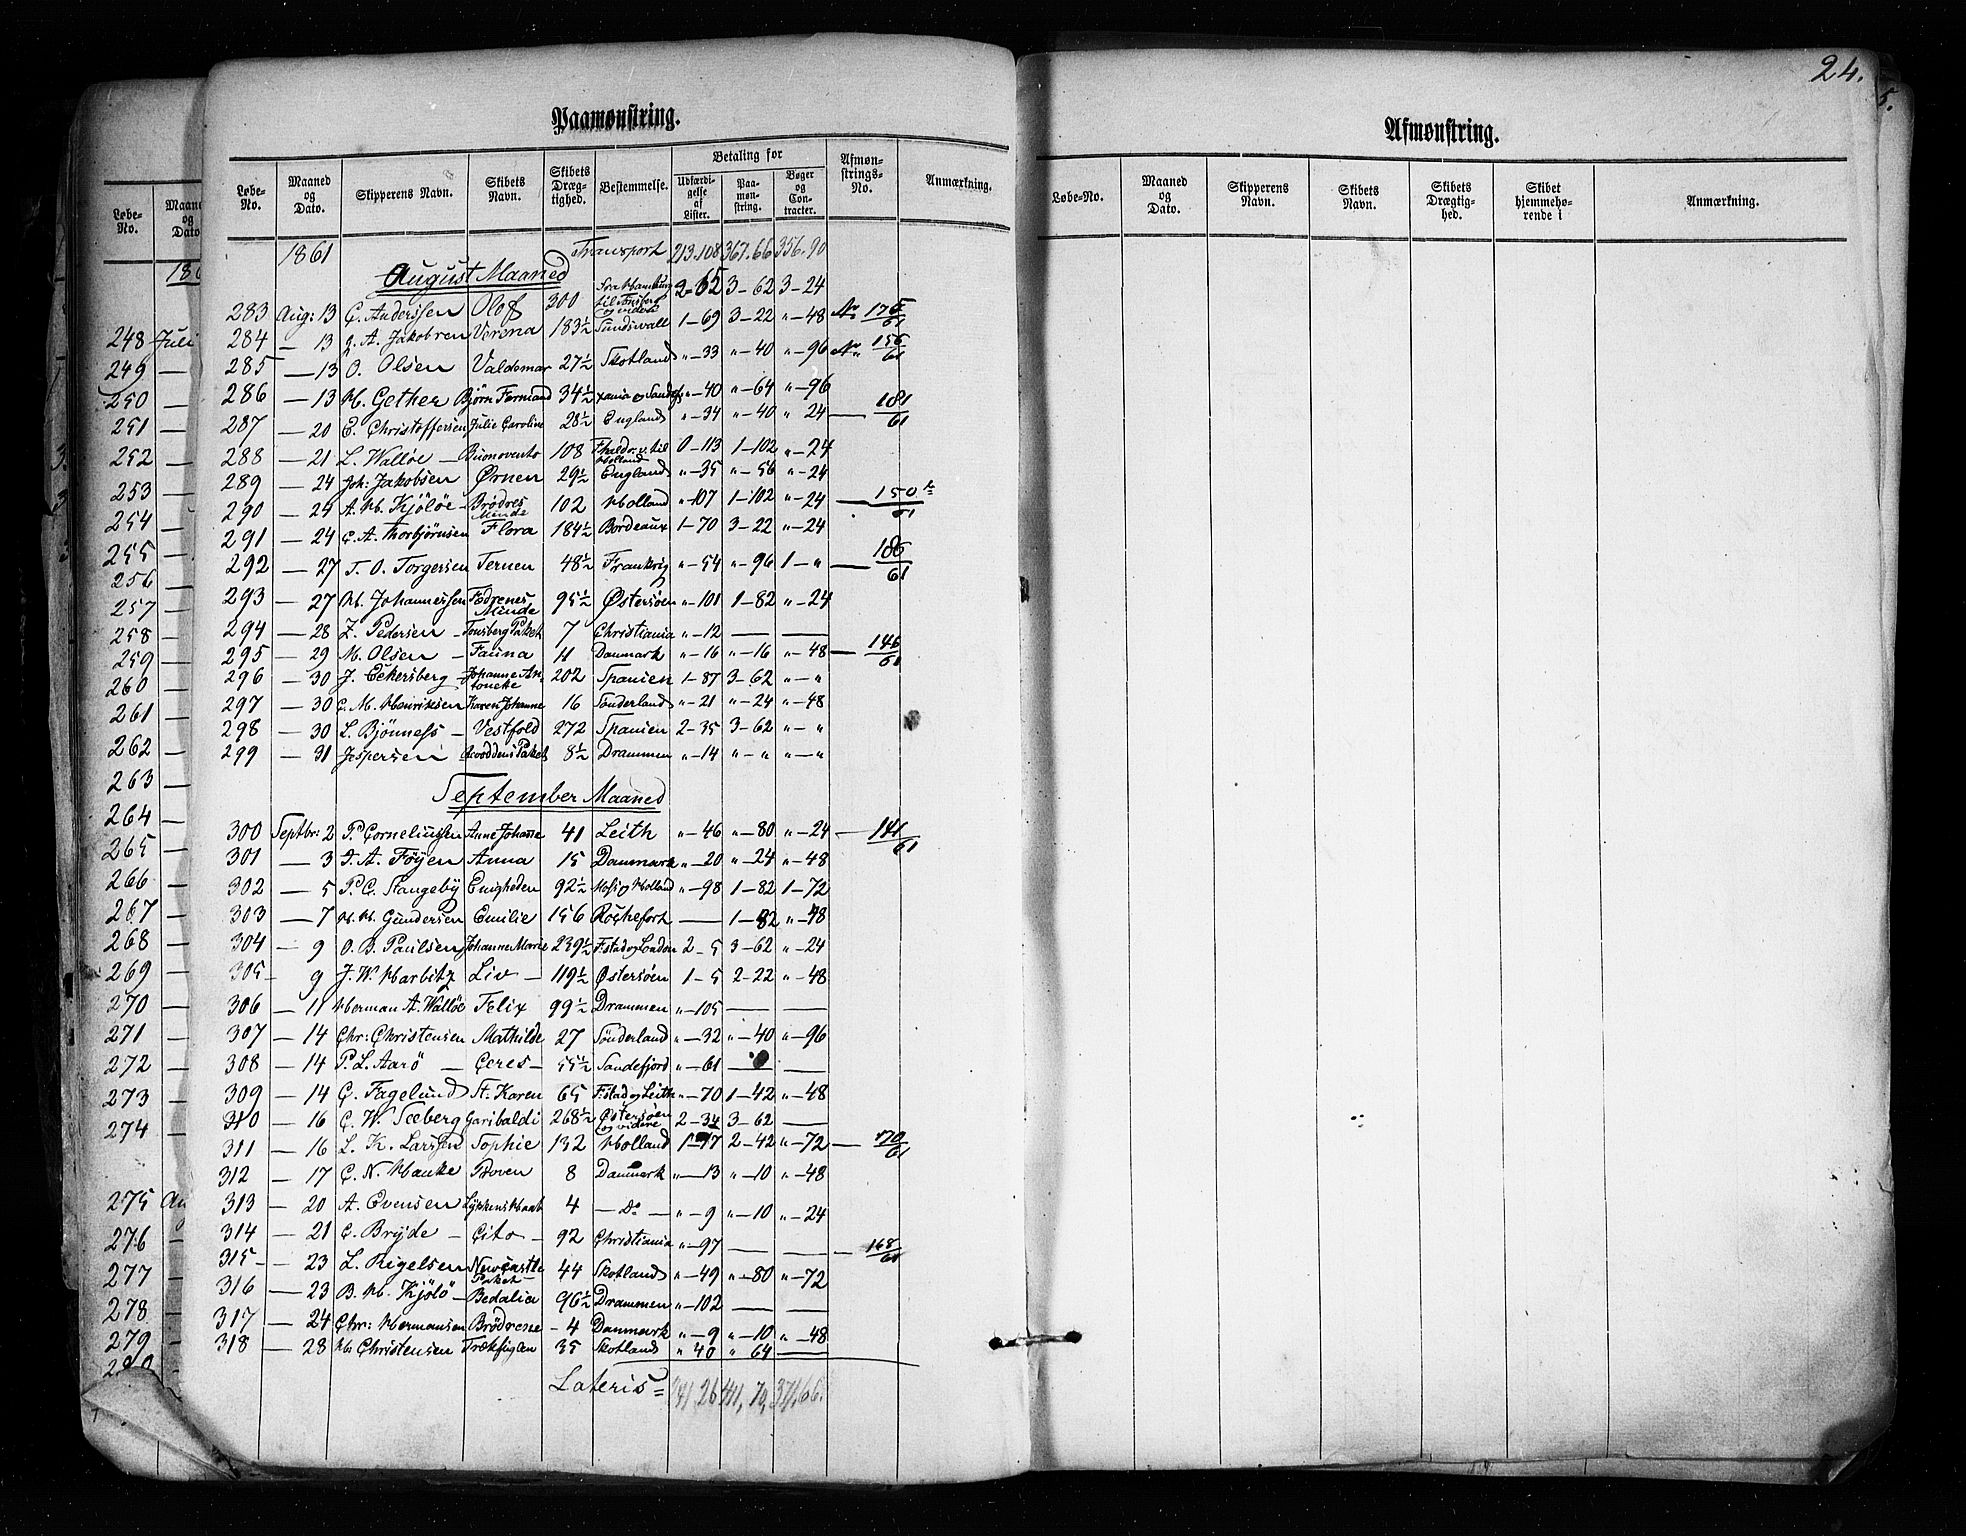 24.
5.
Paamønstring.
Løbe-No. | Maaned og Dato. | Skipperens Navn. | Skibets Navn. | Skibets Dræg-tighed. | Bestemmelse. | Betaling for Udfærdi-gelse af Lister. | Paa-møn-string. | Bøger og Con-tracter. | Afmøn-strings-No. | Anmærkning.
1861 Transport 213.108 367.66 356.90
August Maaned
283 Aug: 13 C. Anderssen Olof 300 Fra Hamburg til Tønsberg og videre 2-65 3-62 3-24 No 175/61
284 — 13 J. A. Jakobsen Verena 183½ Sundsvall 1-69 3-22 "-48 No 155/61
285 — 13 O. Olsen Valdemar 27½ Skotland "-33 "-40 "-96
286 — 13 H. Gether Bjørn Fermand 34½ "-40 "-64 "-96
287 — 20 E. Christoffersen Julie Caroline 28½ England "-34 "-40 " 24 — 181/61
288 — 21 L. Walløe — Buonovento 108 til Holland 0-113 1-102 "-24
289 — 24 Joh: Jakobsen Ørnen 29½ England "-35 "-56 "-24
290 — 24 A. H. Kjöløe — Brødres Minde 102 Holland "-107 1-102 "-24 — 150/61
291 — 24 C. A. Thorbjørnsen Flora 184½ Bordeaux 1-70 3-22 "-24
292 — 27 T. O. Torgersen Ternen 48½ Frankrig "-54 "-96 1-" — 186/61
293 — 27 H. Johannessen Fædrenes Minde 95½ Østersøen "-101 1-82 "-24
294 — 28 Z. Pedersen — Tønsberg Paket 7 Christiania "-12 — —
295 — 29 M. Olsen — Fauna 11 Danmark "-16 "-16 "-48 — 146/61
296 — 30 J. Eckersberg — Johanne Antonette 202 Spanien 1-87 3-62 "-"
297 — 30 C. M. Henriksen Karen Johanne 16 Sønderland "-21 "-24 "-48
298 — 30 L. Bjönness — Vestfold 272 Spanien 2-35 3-62 "-"
299 — 31 Jespersen Paket 8½ Drammen "-14 "-" "-"
September Maaned
300 Septbr: 2 P. Corneliussen Anne Johanne 41 Leith "-46 "-80 "-24 — 141/61
301 — 3 A. Föyen Anna 15 Danmark "-20 "-24 "-48
302 — 5 P. C. Stangeby Enigheden 92½ Moss og Holland "-98 1-82 1-72
303 — 7 H. H. Gundersen Emilie 156 Rochefort — 1-82 "-48
304 — 9 O. B. Paulsen Johanne Marie 239½ F.stad og London 2-5 3-62 "-24
305 — 9 J. W. Harbitz Liv — 119½ Østersøen 1-5 2-22 "-48
306 — 11 Herman A. Walløe Felix 99½ Drammen "-105 — —
307 — 14 Chr: Christensen Mathilde 27 Sönderland "-32 "-40 "-96
308 — 14 P. L. Aarö — Ceres — 55½ Sandefjord "-61 — —
309 — 14 C. Fagelund St. Karen 65 F.stad og Leith "-70 1-42 "-48
310 — 16 C. W. Seeberg Garibaldi 268½ Østersøen og videre 2-34 3-62 —
311 — 16 L. K. Larssen Sophie 132 Holland 1-17 2-42 "-72 — 170/61
312 — 17 C. N. Hanke Proven 8 Danmark "-13 "-10 "-48
313 — 20 A. Evensen Lykkens Haab 4 — Do — "-9 "-10 "-24
314 — 21 C. Bryde — Cito — 92 Christiania "-97 — — — 168/61
315 — 23 L. Rigelsen Newcastle Paket 44 Skotland "-49 "-80 "-72
316 — 23 B. H. Kjölö — Bedalia 96½ Drammen "-102 — —
317 — 24 Chr: Hermansen Brödrene — 4 Danmark "-9 "-10 "-48
318 — 28 H. Christensen Trækfuglen 35 Skotland " 40 " 64 —
Lateris = 241,26 411,79, 371,66.
Afmønstring.
Løbe-No. | Maaned og Dato. | Skipperens Navn. | Skibets Navn. | Skibets Drægtig-hed. | Skibet hjemmehø-rende i | Anmærkning.
Løbe-No. | Maaned og Dato
248 Juli
249 —
250 —
251 —
252 —
253 —
254 —
255 —
256 —
257 —
258 —
259 —
260 —
261 —
262 —
263 —
264 —
265 —
266 —
267 —
268 —
269 —
270 —
271 —
272 —
273 —
274 —
275
276 —
277 —
278 —
279 —
280